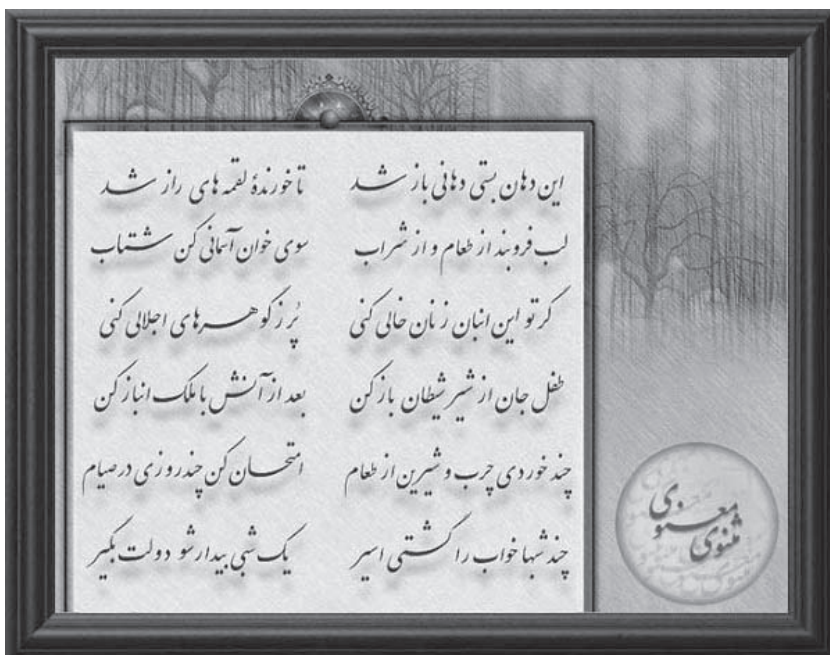 این دهان بستی دهانی باز شد تا خورندهٔ لقمه های راز شد
لب فروبند از طعام و از شراب سوی خوان آسمانی کن شتاب
گر تو این انبان ز نان خالی کنی پُر ز گوهرهای اجلالی کنی
طفل جان از شیر شیطان باز کن بعد از آنش با ملک انباز کن
چند خوردی چرب و شیرین از طعام امتحان کن چند روزی در صیام
چند شبها خواب را گشتی اسیر یک شبی بیدار شو دولت بگیر
مثنوی معنوی